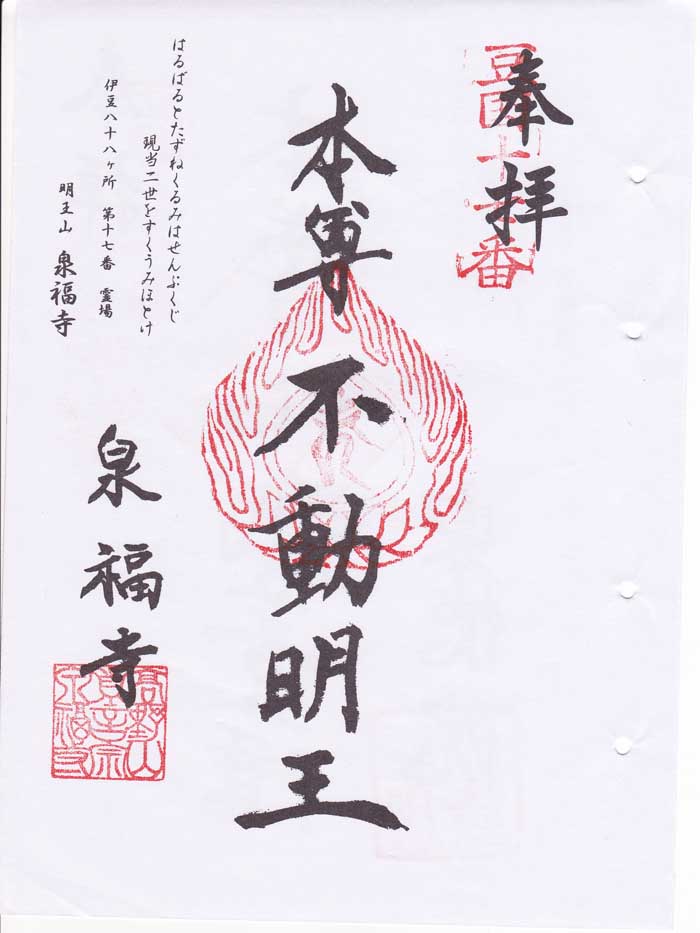 奉拝
豆国十七番
本尊 不動明王
はるばるとたずねくるみはせんぷくじ
現当二世をすくうみほとけ
伊豆八十八ヶ所 第十七番 霊場
明王山 泉福寺
泉福寺
高野山
真言宗
泉福寺